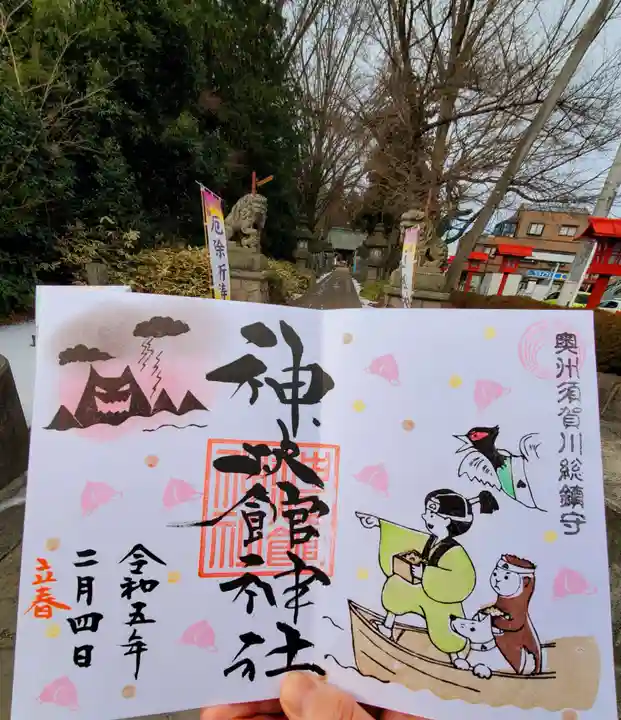 奥州須賀川総鎮守
神炊館神社
令和五年
二月四日
立春
厄除祈祷